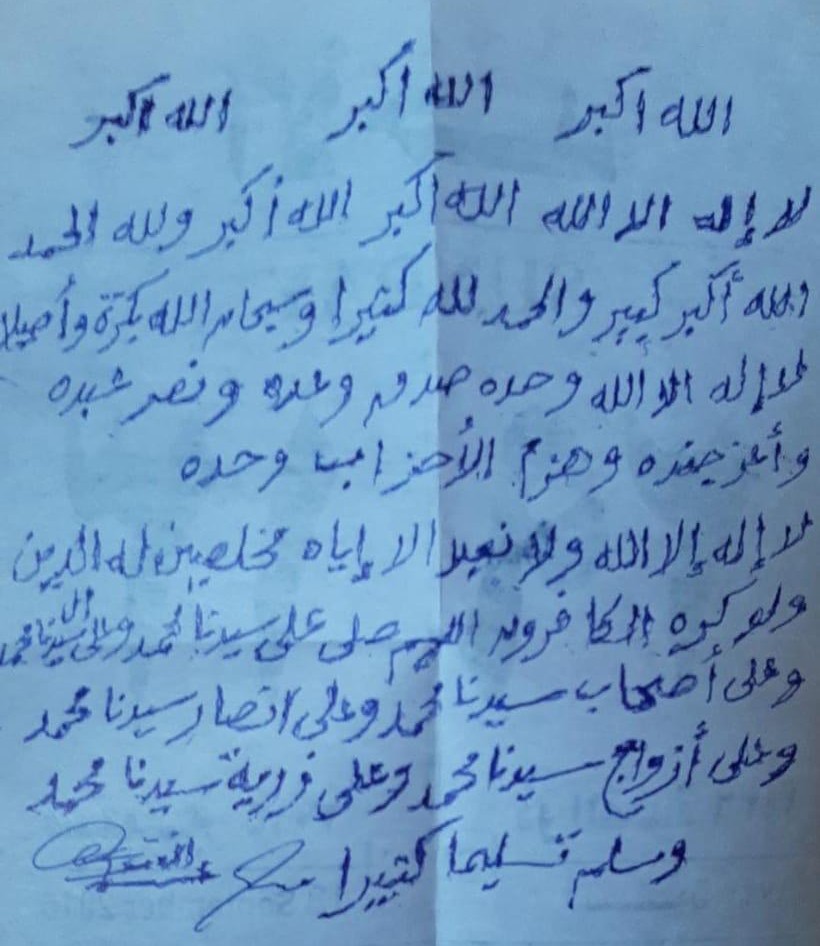 الله اكبر الله أكبر الله اكبر
لا إله الا الله الله أكبر الله أكبر ولله الحمد
الله أكبر كبير والحمد لله كثيرا وسبحان الله بكرة وأصيلا
لا إله الا الله وحده صدق وعده ونصر عبده
وأعز جنده وهزم الأحزاب وحده
لا إله إلا الله ولا نعبد الا إياه مخلصين له الدين
ولو كره الكافرون اللهم صلى على سيدنا محمد وعلى ال سيدنا محمد
وعلى أصحاب سيدنا محمد وعلى انصار سيدنا محمد
وعلى أزواج سيدنا محمد وعلى ذرية سيدنا محمد
وسلم تسليما كثيرا